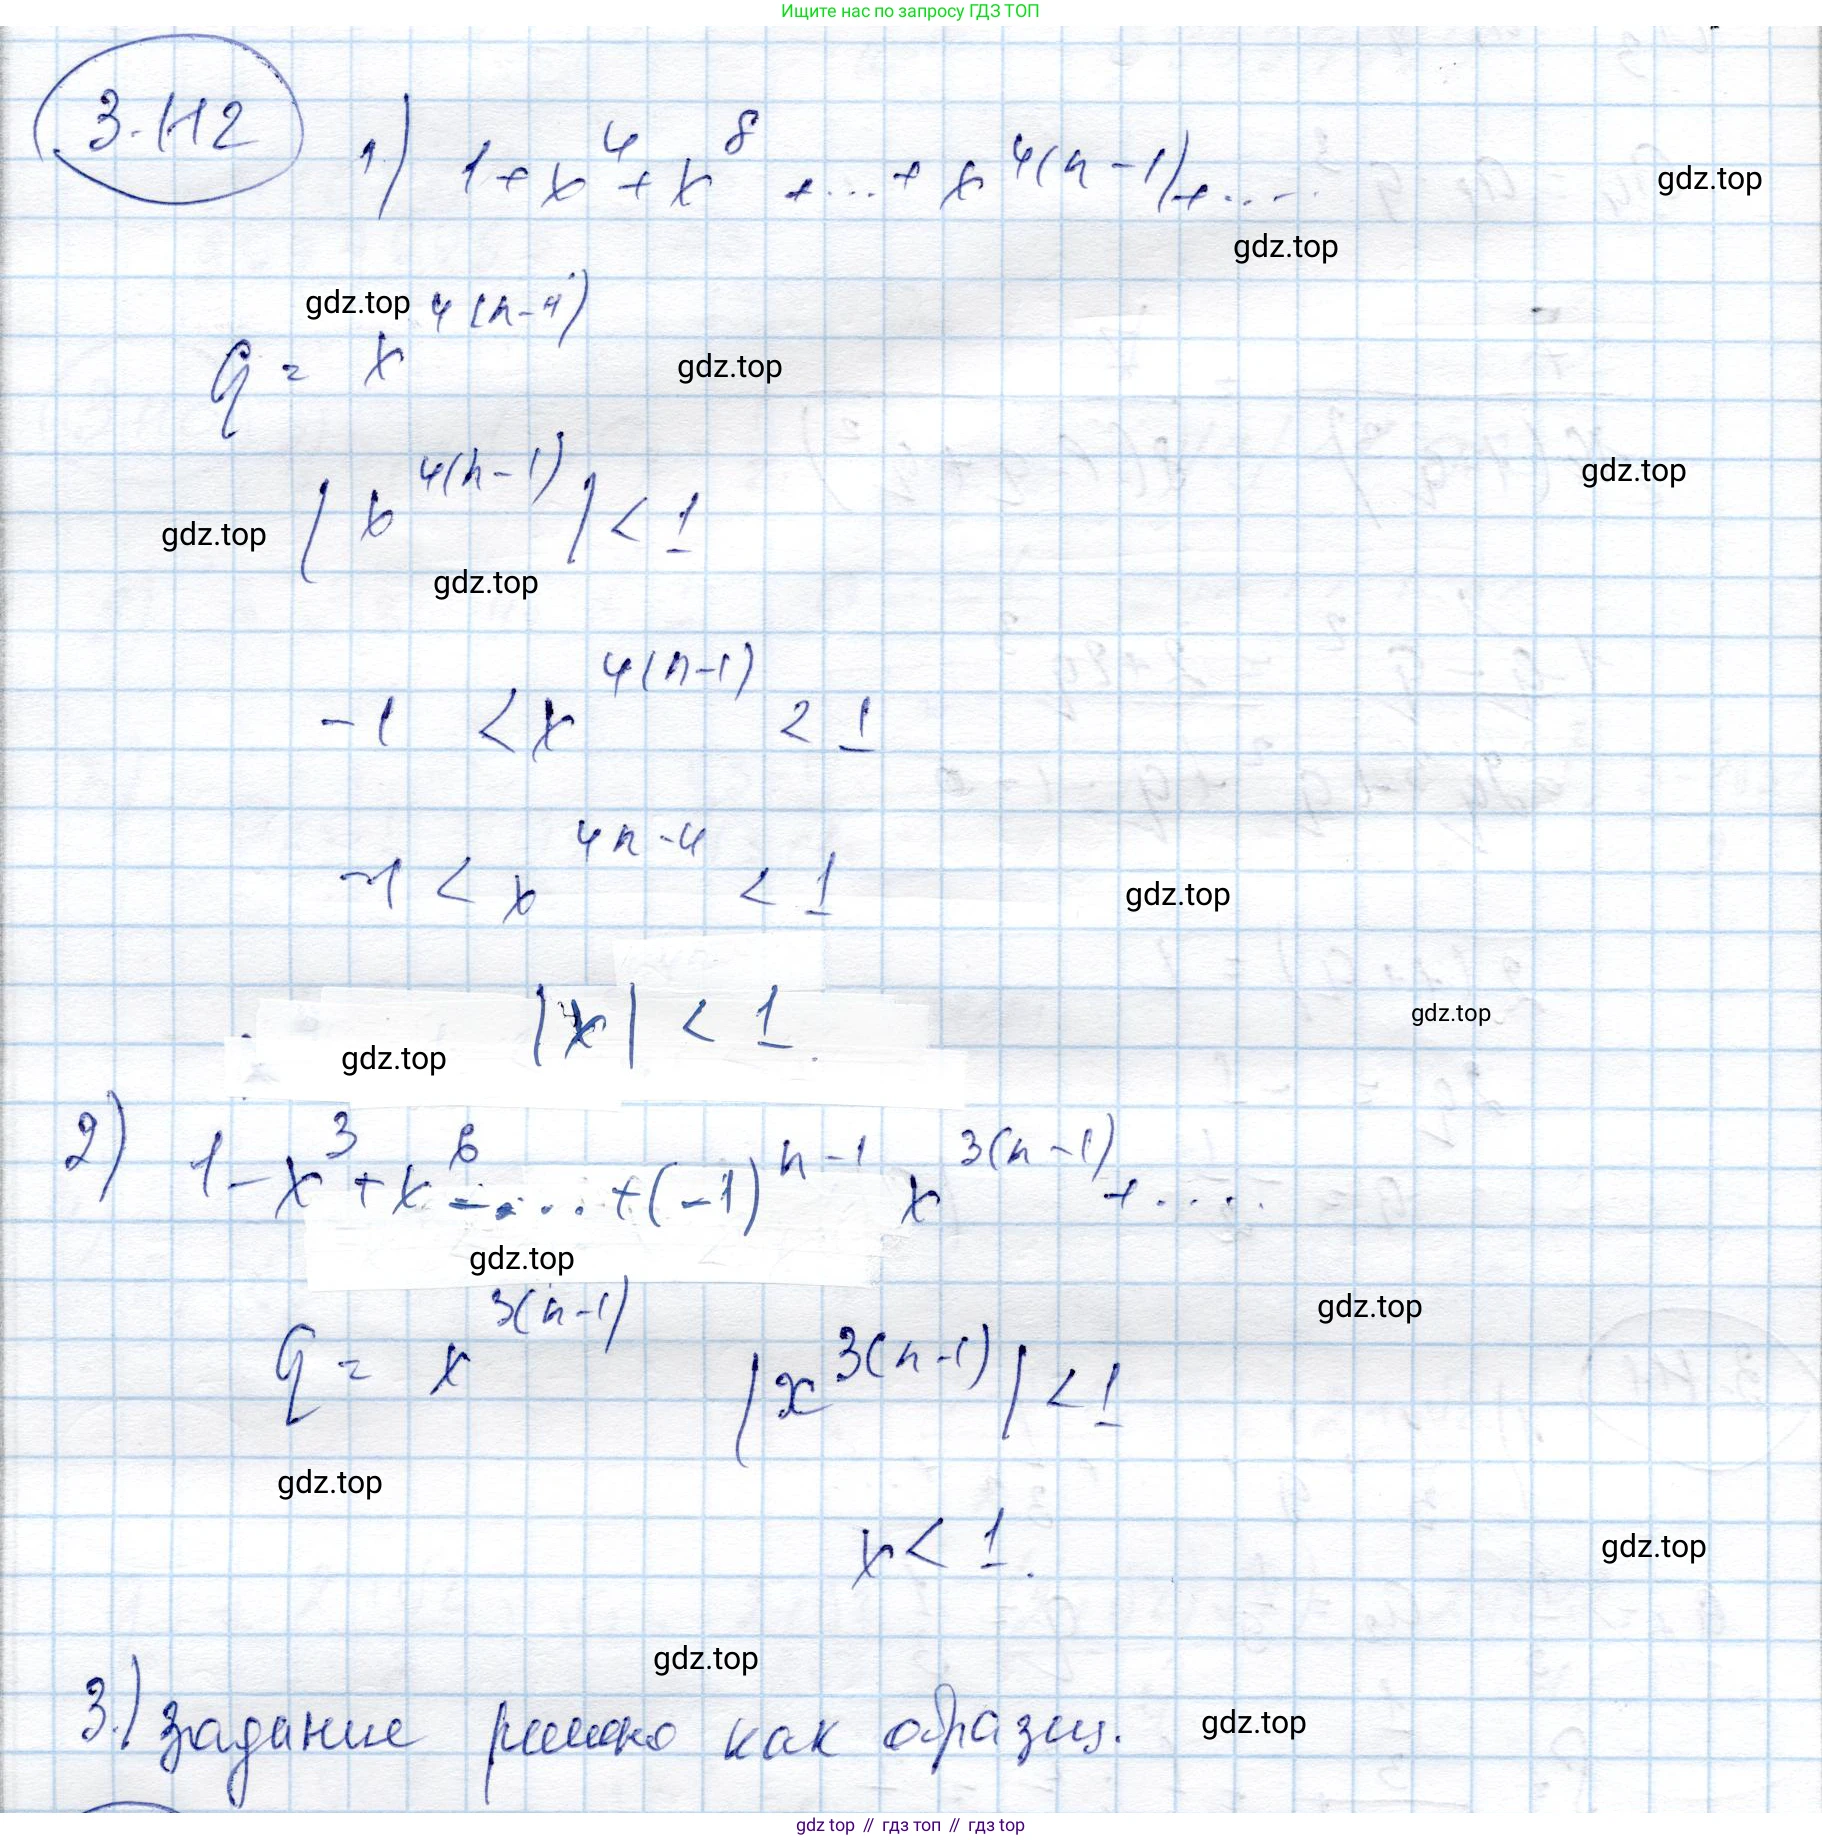 Ищите нас по запросу ГДЗ ТОП
3.Н2
1) 1 + x^4 + x^8 + ... + x^{4(n-1)} + ....
gdz.top
gdz.top
gdz.top
q = x^{4(n-1)}
gdz.top
gdz.top
|x^{4(n-1)}| < 1
gdz.top
gdz.top
-1 < x^{4(n-1)} < 1
-1 < x^{4n-4} < 1
gdz.top
|x| < 1.
gdz.top
gdz.top
2) 1 - x^3 + x^6 - ... + (-1)^{n-1} x^{3(n-1)} + ....
gdz.top
gdz.top
q = x^{3(n-1)} |x^{3(n-1)}| < 1
gdz.top
x < 1.
gdz.top
gdz.top
3.) задание решено как образец.
gdz.top
gdz top // гдз топ // гдз top